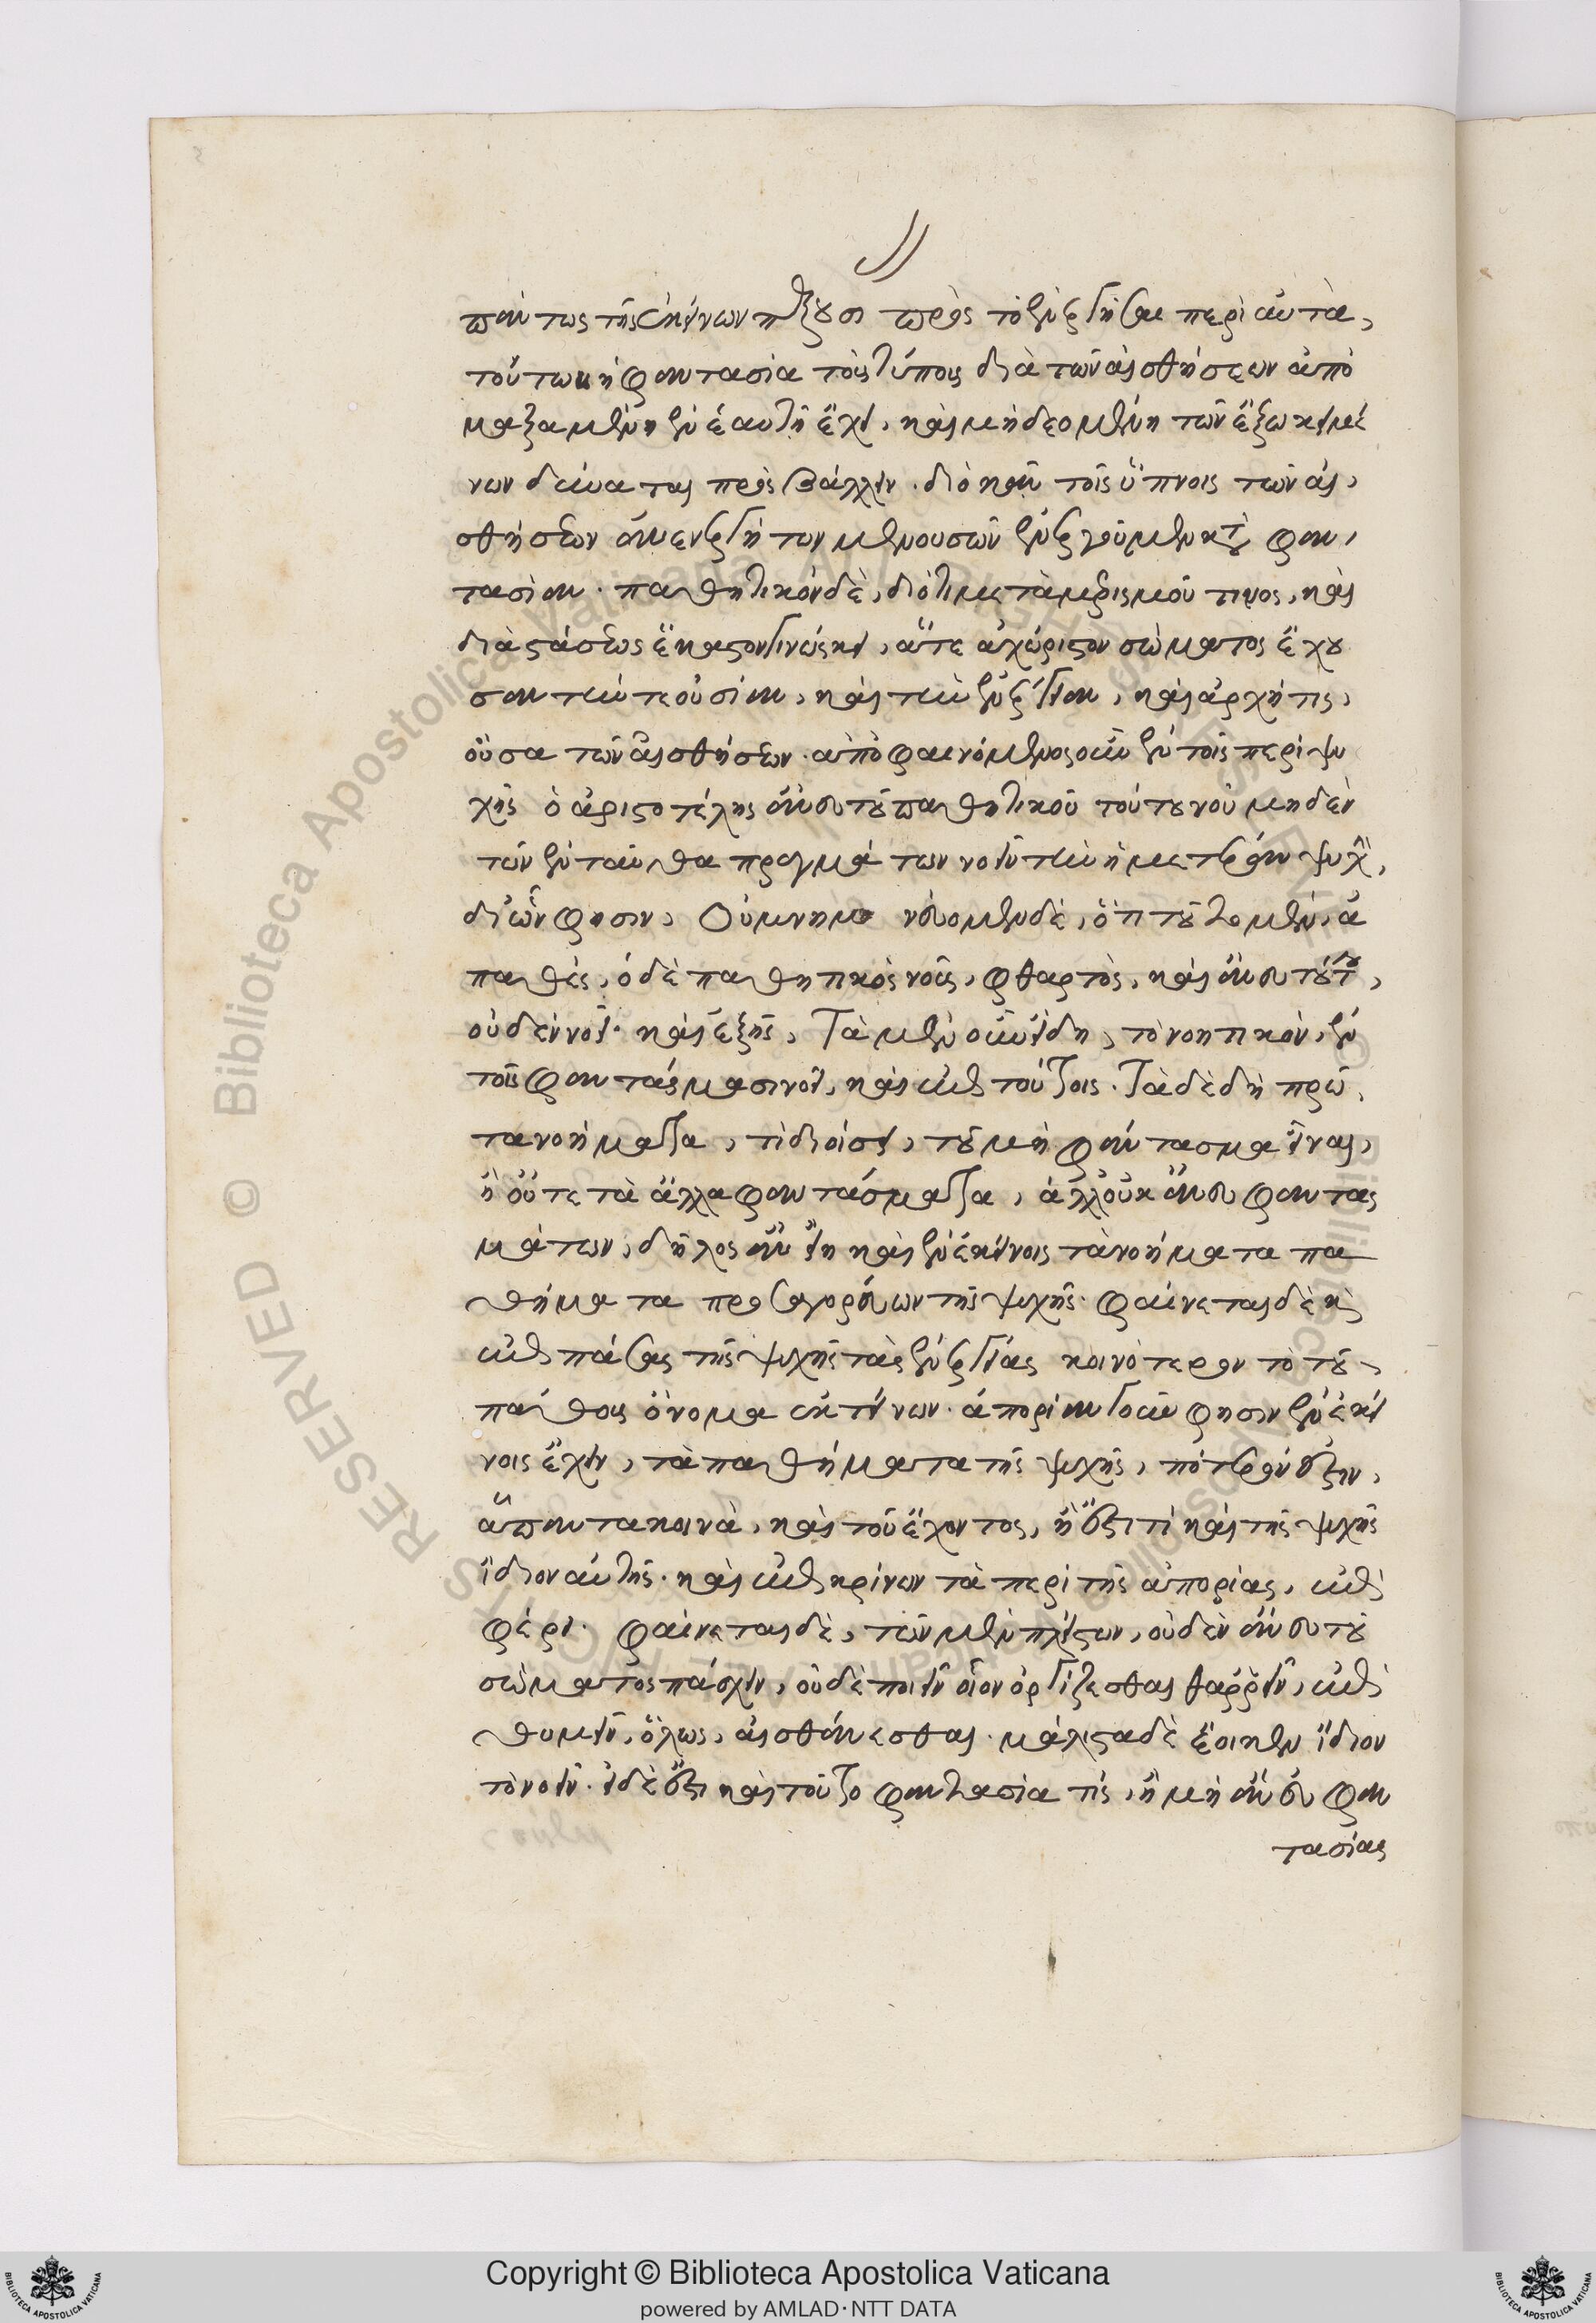 πάντως τῆς ἐκείνων πλήξουσι πρὸς τὸ ἐνεργῆσαι περὶ αὐτὰ,
τούτων ἡ φαντασία τοὺς τύπους διὰ τῶν αἰσθήσεων ἀπο
μαξαμένη ἐν ἑαυτῆ ἔχει, καὶ μὴ δεομένη τῶν ἔξω κειμέ
νων δύναται προσβάλλειν. διὸ κἀν τοῖς ὕπνοις τῶν αἰ,
σθήσεων ἀνενεργήτων μενουσῶν ἐνεργοῦμεν κατὰ φαν,
τασίαν. παθητικὸν δὲ, διότι μετὰ μερισμοῦ τινος, καὶ
διαστάσεως ἕκαστον γινώσκει, ἅτε ἀχώριστον σώματος ἔχου
σαν τήν τε οὐσίαν, καὶ τὴν ἐνέργειαν, καὶ ἀρχή τις,
οὖσα τῶν αἰσθήσεων. ἀποφαινόμενος οὖν ἐν τοῖς περὶ ψυ
χῆς ὁ ἀριστοτέλης ἄνευ τοῦ παθητικοῦ τούτου νοῦ μηδὲν
τῶν ἐνταῦθα πραγμάτων νοεῖν τὴν ἡμετέραν ψυχὴν,
δι' ὧν φησιν, Οὐ μνημονεύομεν δὲ, ὅτι τοῦτο μὲν, ἀ
παθὲς, ὁ δὲ παθητικὸς νοῦς, φθαρτὸς, καὶ ἄνευ τούτου,
οὐδὲν νοεῖ. καὶ ἑξῆς, Τὰ μὲν οὖν εἴδη, τὸ νοητικὸν, ἐν
τοῖς φαντάσμασι νοεῖ, καὶ ἐπὶ τούτοις. Τὰ δὲ δὴ πρῶ,
τα νοήματα, τί διοίσει, τοῦ μὴ φάντασμα εἶναι,
ἢ οὔτε τὰ ἄλλα φαντάσματα, ἀλλ' οὐκ ἄνευ φαντας
μάτων, δῆλος ἂν εἴη καὶ ἐν ἐκείνοις τὰ νοήματα πα
θήματα προσαγορεύων τῆς ψυχῆς. φαίνεται δὲ καὶ
ἐπὶ πάσας τῆς ψυχῆς τὰς ἐνεργείας κοινότερον τὸ τοῦ
πάθους ὄνομα ἐκτείνων. ἀπορίαν γοῦν φησιν ἐν ἐκεί
νοις ἔχειν, τὰ παθήματα τῆς ψυχῆς, πότερόν ἐστιν,
ἅπαντα κοινὰ, καὶ τοῦ ἔχοντος, ἢ ἔστι τὶ καὶ τῆς ψυχῆς
ἴδιον αὐτῆς. καὶ ἐπικρίνων τὰ περὶ τῆς ἀπορίας, ἐπι
φέρει. φαίνεται δὲ, τῶν μὲν πλείστων, οὐδὲν ἄνευ τοῦ
σώματος πάσχειν, οὐδὲ ποιεῖν οἷον ὀργίζεσθαι θαρρεῖν, ἐπι
θυμεῖν, ὅλως, αἰσθάνεσθαι. μάλιστα δὲ ἔοικεν ἴδιον
τὸ νοεῖν. εἰ δὲ ἔστι καὶ τοῦτο φαντασία τὶς, ἢ μὴ ἄνευ φαν
τασίας